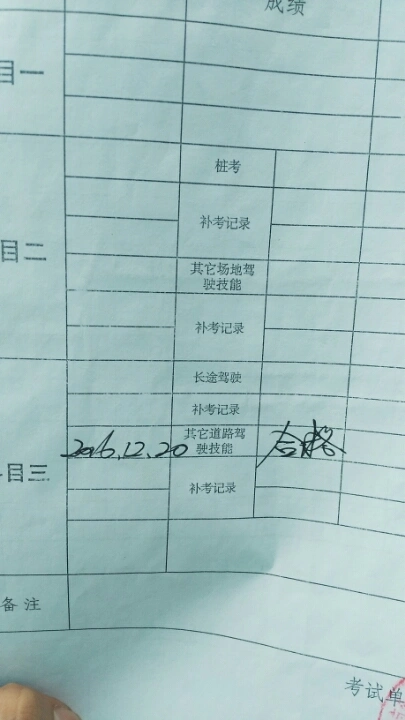 成绩
目一
桩考
补考记录
目二
其它场地驾
驶技能
补考记录
长途驾驶
补考记录
2016.12.20
其它道路驾
驶技能
合格
目三
补考记录
备 注
考试单